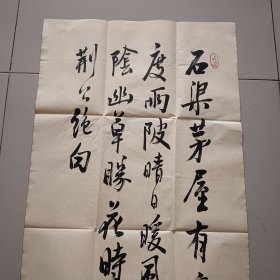 石梁茅屋有
度兩陂晴日暖風
陰幽草勝花時
荆公絕句